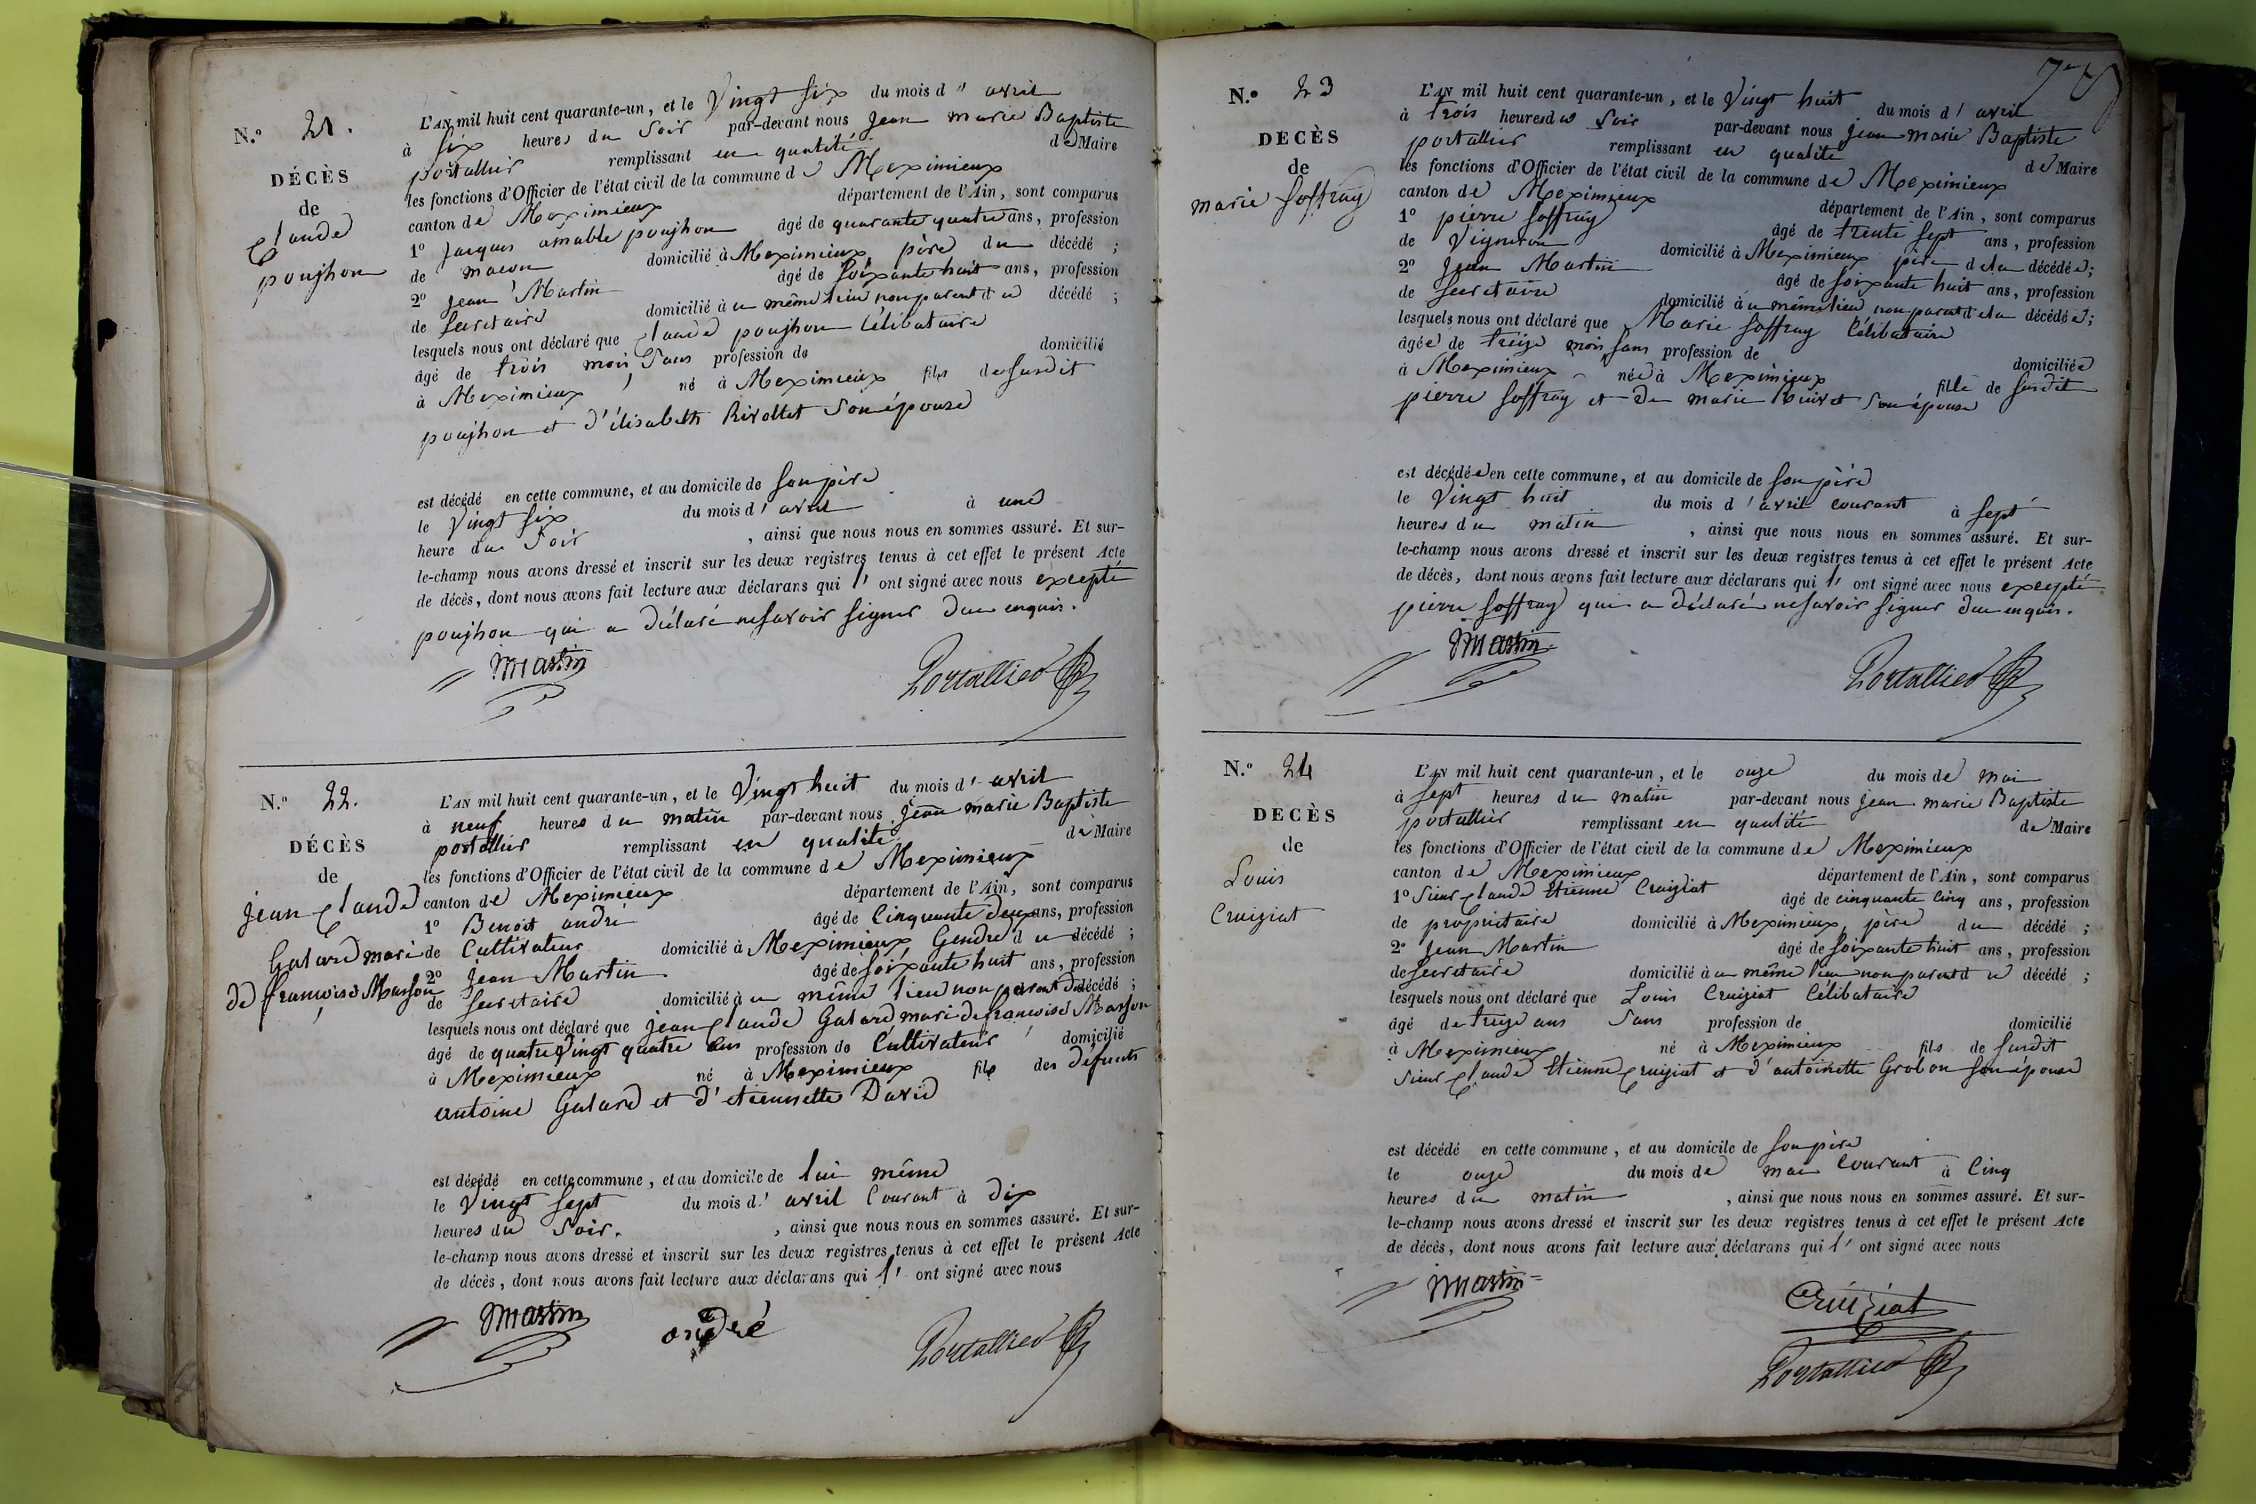 N.º 21.
DÉCÈS
de
Claude
poujhon
L'AN mil huit cent quarante-un, et le Vingt Six du mois d'' avril
à Six heures du Soir par-devant nous jean marie Baptiste
portallier remplissant en qualité de Maire
les fonctions d'Officier de l'état civil de la commune de Meximieux
canton de Meximieux département de l'Ain, sont comparus
1º Jacques amable poujhon âgé de quarante quatre ans, profession
de macon domicilié à Meximieux père du décédé ;
2º jean Martin âgé de Soixante huit ans, profession
de Secretaire domicilié à u même lieu non parent d u décédé ;
lesquels nous ont déclaré que Claude poujhon Célibataire
âgé de trois mois, Sans profession de domicilié
à Meximieux né à Meximieux fils de Susdit
poujhon et d'élisabeth Rivollet Son épouse
est décédé en cette commune, et au domicile de Son père
le Vingt Six du mois d' avril à une
heure du Soir , ainsi que nous nous en sommes assuré. Et sur-
le-champ nous avons dressé et inscrit sur les deux registres tenus à cet effet le présent Acte
de décès, dont nous avons fait lecture aux déclarans qui l' ont signé avec nous excepté
poujhon qui a déclaré ne Savoir Signer d'un enquis.
Martin Portallier
N.º 22.
DÉCÈS
de
jean Claude
Galard mari
de françoise Masson
L'AN mil huit cent quarante-un, et le Vingt huit du mois d' avril
à neuf heures du matin par-devant nous jean marie Baptiste
portallier remplissant en qualité de Maire
les fonctions d'Officier de l'état civil de la commune de Meximieux
canton de Meximieux département de l'Ain, sont comparus
1º Benoit andré âgé de Cinquante deux ans, profession
de Cultivateur domicilié à Meximieux Gendre d u décédé ;
2º jean Martin âgé de Soixante huit ans, profession
de Secretaire domicilié à u même lieu non parent du décédé ;
lesquels nous ont déclaré que jean Claude Galard mari de françoise Masson
âgé de quatre Vingt quatre ans profession de Cultivateur domicilié
à Meximieux né à Meximieux fils des défunts
antoine Galard et d'etiennette David
est décédé en cette commune, et au domicile de lui même
le Vingt Sept du mois d' avril Courant à Dix
heures du Soir. , ainsi que nous nous en sommes assuré. Et sur-
le-champ nous avons dressé et inscrit sur les deux registres tenus à cet effet le présent Acte
de décès, dont nous avons fait lecture aux déclarans qui l' ont signé avec nous
Martin andré Portallier
N.º 23
DECÈS
de
marie Soffray
L'AN mil huit cent quarante-un, et le Vingt huit du mois d' avril
à trois heures du Soir par-devant nous jean marie Baptiste
portallier remplissant en qualité de Maire
les fonctions d'Officier de l'état civil de la commune de Meximieux
canton de Meximieux département de l'Ain, sont comparus
1º pierre Soffray âgé de trente Sept ans, profession
de Vigneron domicilié à Meximieux père d e la décédée ;
2º Jean Martin âgé de Soixante huit ans, profession
de Secretaire domicilié à u même lieu non parent d e la décédée ;
lesquels nous ont déclaré que Marie Soffray Célibataire
âgée de treize mois, Sans profession de domiciliée
à Meximieux née à Meximieux fille de Susdit
pierre Soffray et de marie Son épouse
est décédée en cette commune, et au domicile de Son père
le Vingt huit du mois d' avril courant à Sept
heures du matin , ainsi que nous nous en sommes assuré. Et sur-
le-champ nous avons dressé et inscrit sur les deux registres tenus à cet effet le présent Acte
de décès, dont nous avons fait lecture aux déclarans qui l' ont signé avec nous excepté
pierre Soffray qui a déclaré ne Savoir Signer d'un enquis.
Martin Portallier
N.º 24
DECÈS
de
Louis
Cruiziat
L'AN mil huit cent quarante-un, et le onze du mois de mai
à Sept heures du matin par-devant nous jean marie Baptiste
portallier remplissant en qualité de Maire
les fonctions d'Officier de l'état civil de la commune de Meximieux
canton de Meximieux département de l'Ain, sont comparus
1º Sieur Claude Etienne Cruiziat âgé de cinquante cinq ans, profession
de propriétaire domicilié à Meximieux, père du décédé ;
2º Jean Martin âgé de Soixante huit ans, profession
de Secretaire domicilié à u même lieu non parent d u décédé ;
lesquels nous ont déclaré que Louis Cruiziat Célibataire
âgé de treize ans Sans profession de domicilié
à Meximieux né à Meximieux fils de Susdit
Sieur Claude Etienne Cruiziat et d'antoinette Grobon Son épouse
est décédé en cette commune, et au domicile de Son père
le onze du mois de mai Courant à Cinq
heures du matin , ainsi que nous nous en sommes assuré. Et sur-
le-champ nous avons dressé et inscrit sur les deux registres tenus à cet effet le présent Acte
de décès, dont nous avons fait lecture aux déclarans qui l' ont signé avec nous
Martin Cruiziat
Portallier